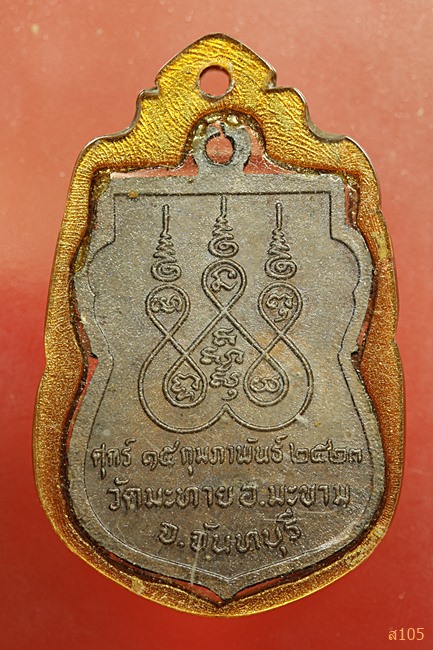 ศุกร์ ๑๕ กุมภาพันธ์ ๒๕๒๓
วัดมะทาย อ.มะขาม
จ.จันทบุรี
ส105